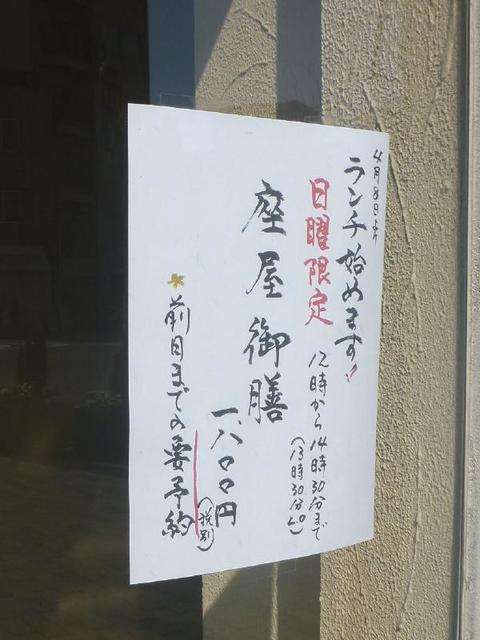 4月8日より
ランチ始めます!
日曜限定
12時から14時30分まで
(13時30分LO)
座屋御膳
一、八〇〇円
(税別)
*前日までの要予約